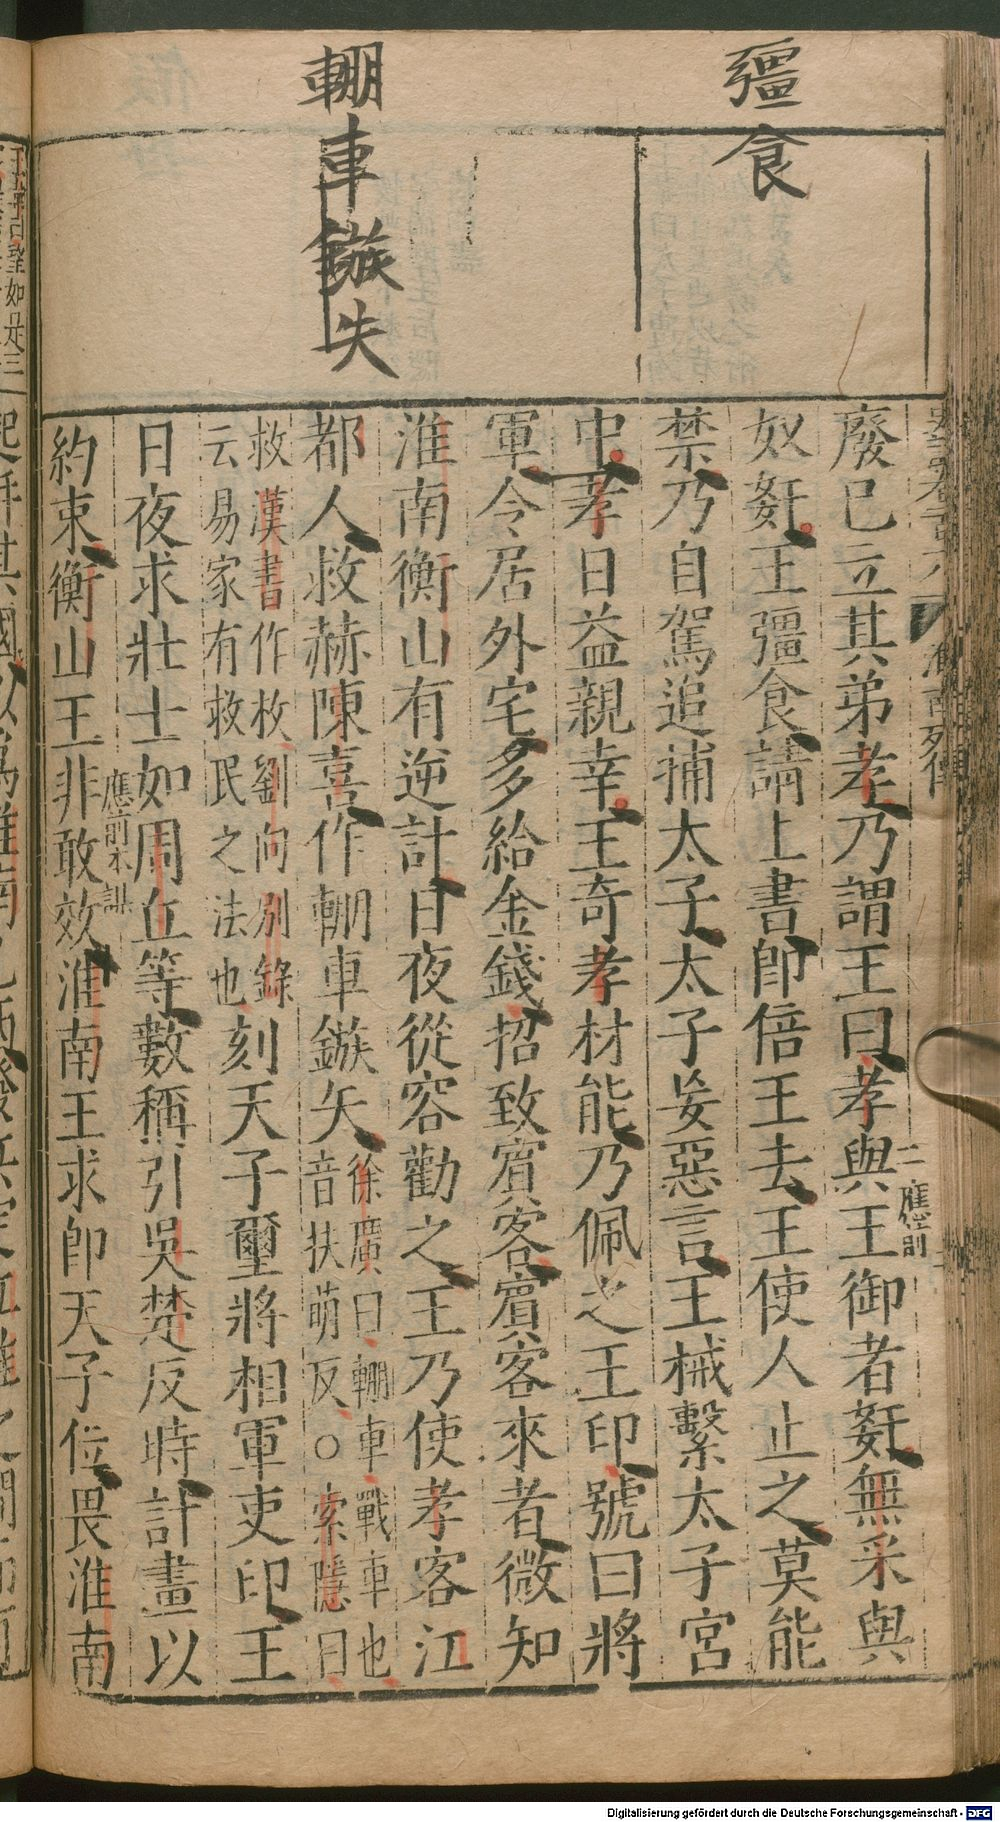 彊食
輣車鏃矢
廢已立其弟孝乃謂王曰孝與王御者姦無采與
奴姦王彊食請上書卽倍王去王使人止之莫能
禁乃自駕追捕太子太子妄惡言王械繫太子宮
中孝日益親幸王奇孝材能乃佩之王印號曰將
軍令居外宅多給金錢招致賓客賓客來者微知
淮南衡山有逆計日夜從容勸之王乃使孝客江
都人救赫陳喜作輣車鏃矢徐廣曰輣車戰車也
音扶萌反○索隱曰
救漢書作枚劉向別錄
云易家有救民之法也刻天子璽將相軍吏印王
日夜求壯士如周丘等數稱引吳楚反時計畫以
應前
約束衡山王非敢效淮南王求卽天子位畏淮南
Digitalisierung gefördert durch die Deutsche Forschungsgemeinschaft - DFG